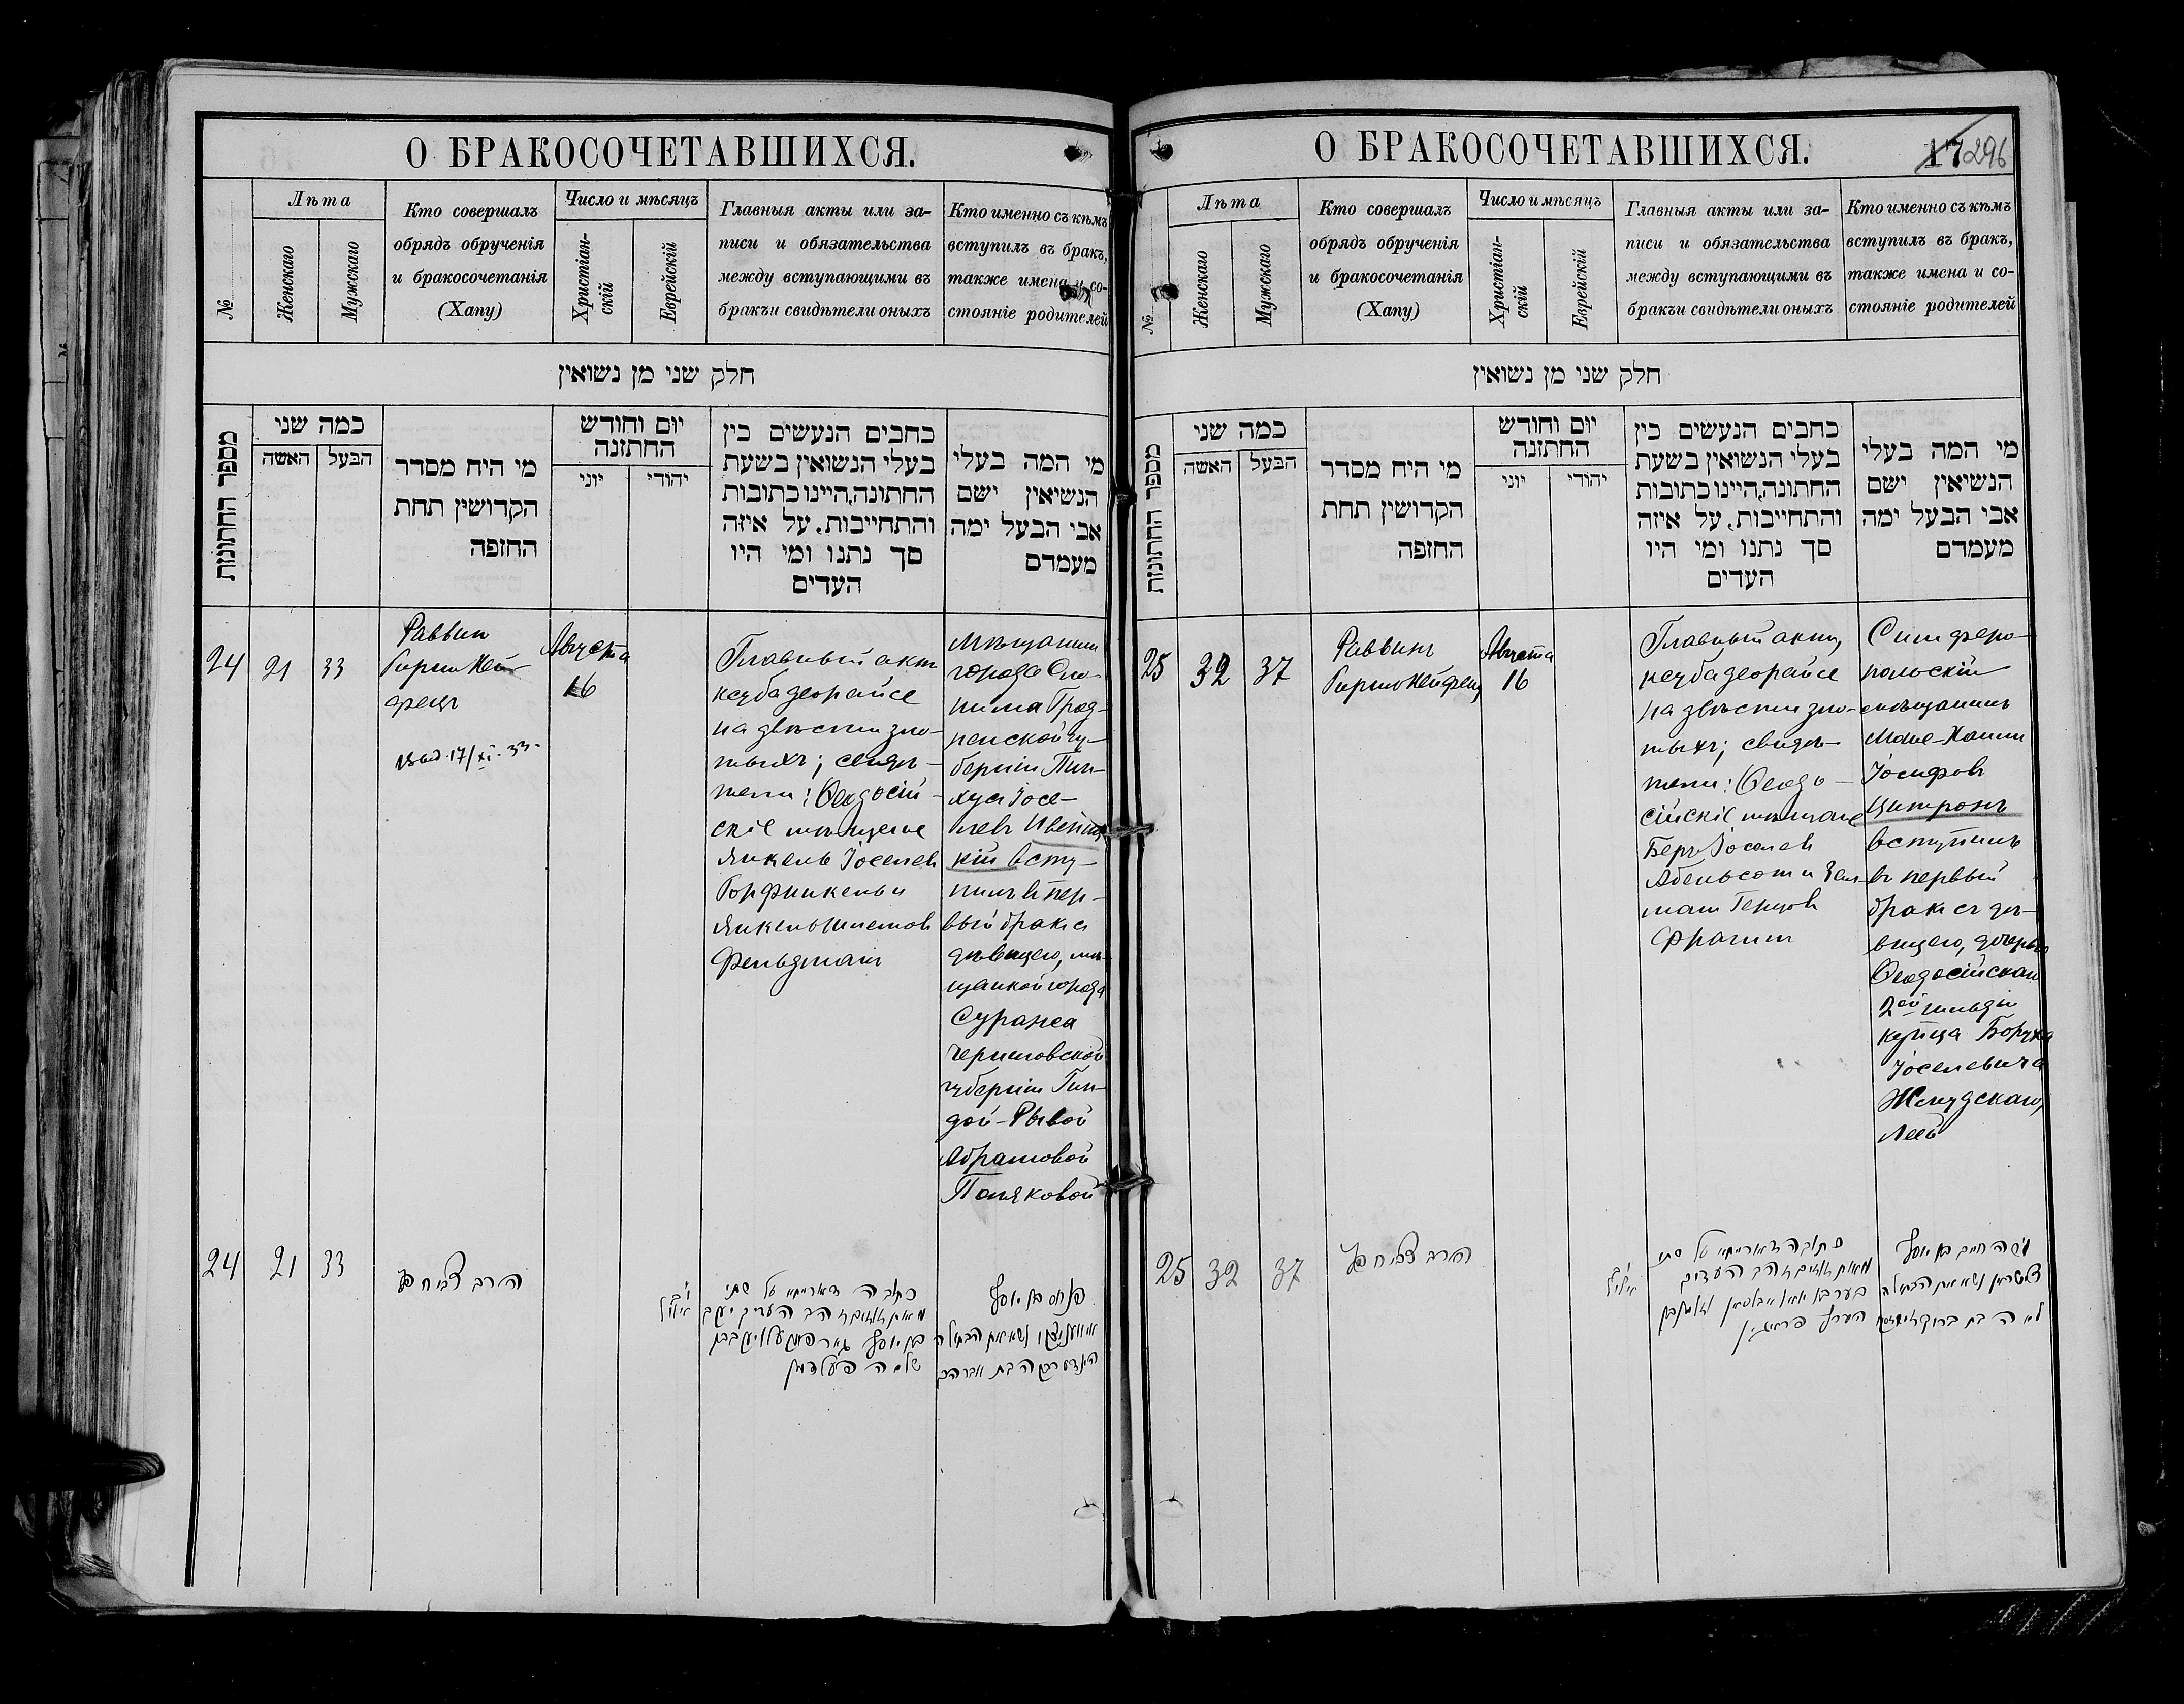 О БРАКОСОЧЕТАВШИХСЯ.
№
Лѣта
Женскаго
Мужскаго
Кто совершалъ
обрядъ обрученія
и бракосочетанія
(Хапу)
Число и мѣсяцъ
Христіан-
скій
Еврейскій
Главныя акты или за-
писи и обязательства
между вступающими въ
бракъ и свидѣтели оныхъ
Кто именно съ кѣмъ
вступилъ въ бракъ,
также имена и со-
стояніе родителей
חלק שני מן נשואין
מספר החתונות
כמה שני
האשה
הבעל
מי היח מסדר
הקדושין תחת
החופה
יום וחודש
החתונה
יוני
יהודי
כחבים הנעשים כין
בעלי הנשואין בשעת
החתונה, היינו כתובות
והתחייבות, על איזה
סך נתנו ומי היו
העדים
מי המה בעלי
הנשיאין ישם
אבי הבעל ימה
מעמדם
24
21
33
Раввин
Гирш Ней-
фецъ
17/XI-33-
Августа
16
Главный актъ
кетуба деорайсе
на двѣсти зло-
тыхъ; свидѣ-
тели: Ѳеодосій-
скіе мѣщане
Янкель Іоселев
Горфинкель и
Янкель Шлемов
Фельдманъ
Мѣщанин
города Сло-
нима Грод-
ненской гу-
берніи Пин-
хус Іосе-
левъ Ивениц
кій всту-
пилъ въ пер-
вый бракъ съ
дѣвицею, мѣ-
щанкой города
Суража
Черниговской
губерніи Гин-
дой-Рывой
Абрамовой
Поляковой
24
21
33
כתובה דאורייתא על שתי
פנחס בן יוסף
О БРАКОСОЧЕТАВШИХСЯ.
17 296
№
Лѣта
Женскаго
Мужскаго
Кто совершалъ
обрядъ обрученія
и бракосочетанія
(Хапу)
Число и мѣсяцъ
Христіан-
скій
Еврейскій
Главныя акты или за-
писи и обязательства
между вступающими въ
бракъ и свидѣтели оныхъ
Кто именно съ кѣмъ
вступилъ въ бракъ,
также имена и со-
стояніе родителей
חלק שני מן נשואין
מספר החתונות
כמה שני
האשה
הבעל
מי היח מסדר
הקדושין תחת
החופה
יום וחודש
החתונה
יוני
יהודי
כחבים הנעשים כין
בעלי הנשואין בשעת
החתונה, היינו כתובות
והתחייבות, על איזה
סך נתנו ומי היו
העדים
מי המה בעלי
הנשיאין ישם
אבי הבעל ימה
מעמדם
25
32
37
Раввинъ
Гирш Нейфецъ
Августа
16
Главный актъ,
кетуба деорайсе
на двѣсти зло-
тыхъ; свидѣ-
тели: Ѳеодо-
сійскіе мѣщане
Беръ Іоселев
Абельсон и Зел-
ман Герцов
Фрагин
Симферо-
польскій
мѣщанинъ
Моше-Хаим
Іосифов
Цитронъ
вступилъ
въ первый
бракъ съ дѣ-
вицею, дочерью
Ѳеодосійскаго
2ой гильдіи
купца Боруха
Іоселевича
Жмудскаго,
Леей
25
32
37
כתובה דאורייתא על שתי
משה חיים בן יוסף